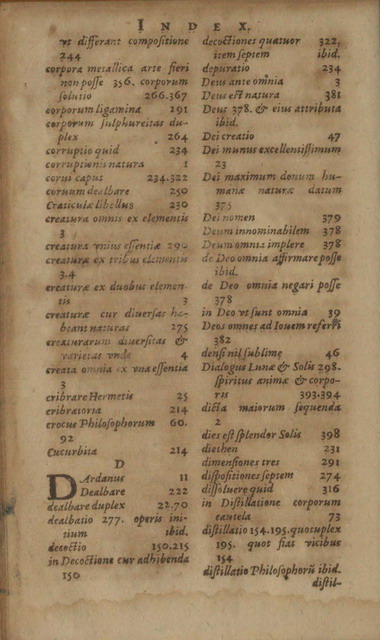 INDEX.
vt differant compositione
244
corpora metallica arte fieri
non posse 356. corporum
solutio 266.367
corporum ligamina 191
corporum sulphureitas du-
plex 264
corruptio quid 234
corruptionis natura 1
corui caput 234.322
coruum dealbare 250
Craticulæ libellus 230
creatura omnis ex elementis
3
creaturæ vnius essentiæ 290
creaturæ ex tribus elementis
3.4
creaturæ ex duobus elemen-
tis 3
creaturæ cur diuersas ha-
beant naturas 275
creaturarum diuersitas &
varietas vnde 4
creata omnia ex vna essentia
3
cribrare Hermetis 25
cribratoria 214
crocus Philosophorum 60.
92
Cucurbita 214
D
DArdanus 11
Dealbare 222
dealbare duplex 22.70
dealbatio 277. operis ini-
tium ibid.
decoctio 150.215
in Decoctione cur adhibenda
150
decoctiones quatuor 322.
item septem ibid.
depuratio 234
Deus ante omnia 3
Deus est natura 381
Deus 378. & eius attributa
ibid.
Dei creatio 47
Dei munus excellentissimum
23
Dei maximum donum hu-
manæ naturæ datum
375
Dei nomen 379
Deum innominabilem 378
Deum omnia implere 378
de Deo omnia affirmare posse
ibid.
de Deo omnia negari posse
378
in Deo vt sunt omnia 39
Deos omnes ad Iouem referri
382
densi nil sublime 46
Dialogus Lunæ & Solis 298.
spiritus animæ & corpo-
ris 393.394
dicta maiorum sequenda
2
dies est splendor Solis 398
diethen 231
dimensiones tres 291
dispositiones septem 274
dissoluere quid 316
in Distillatione corporum
cautela 73
distillatio 154.195. quotuplex
195. quot fiat vicibus
154
distillatio Philosophorũ ibid.
distil-